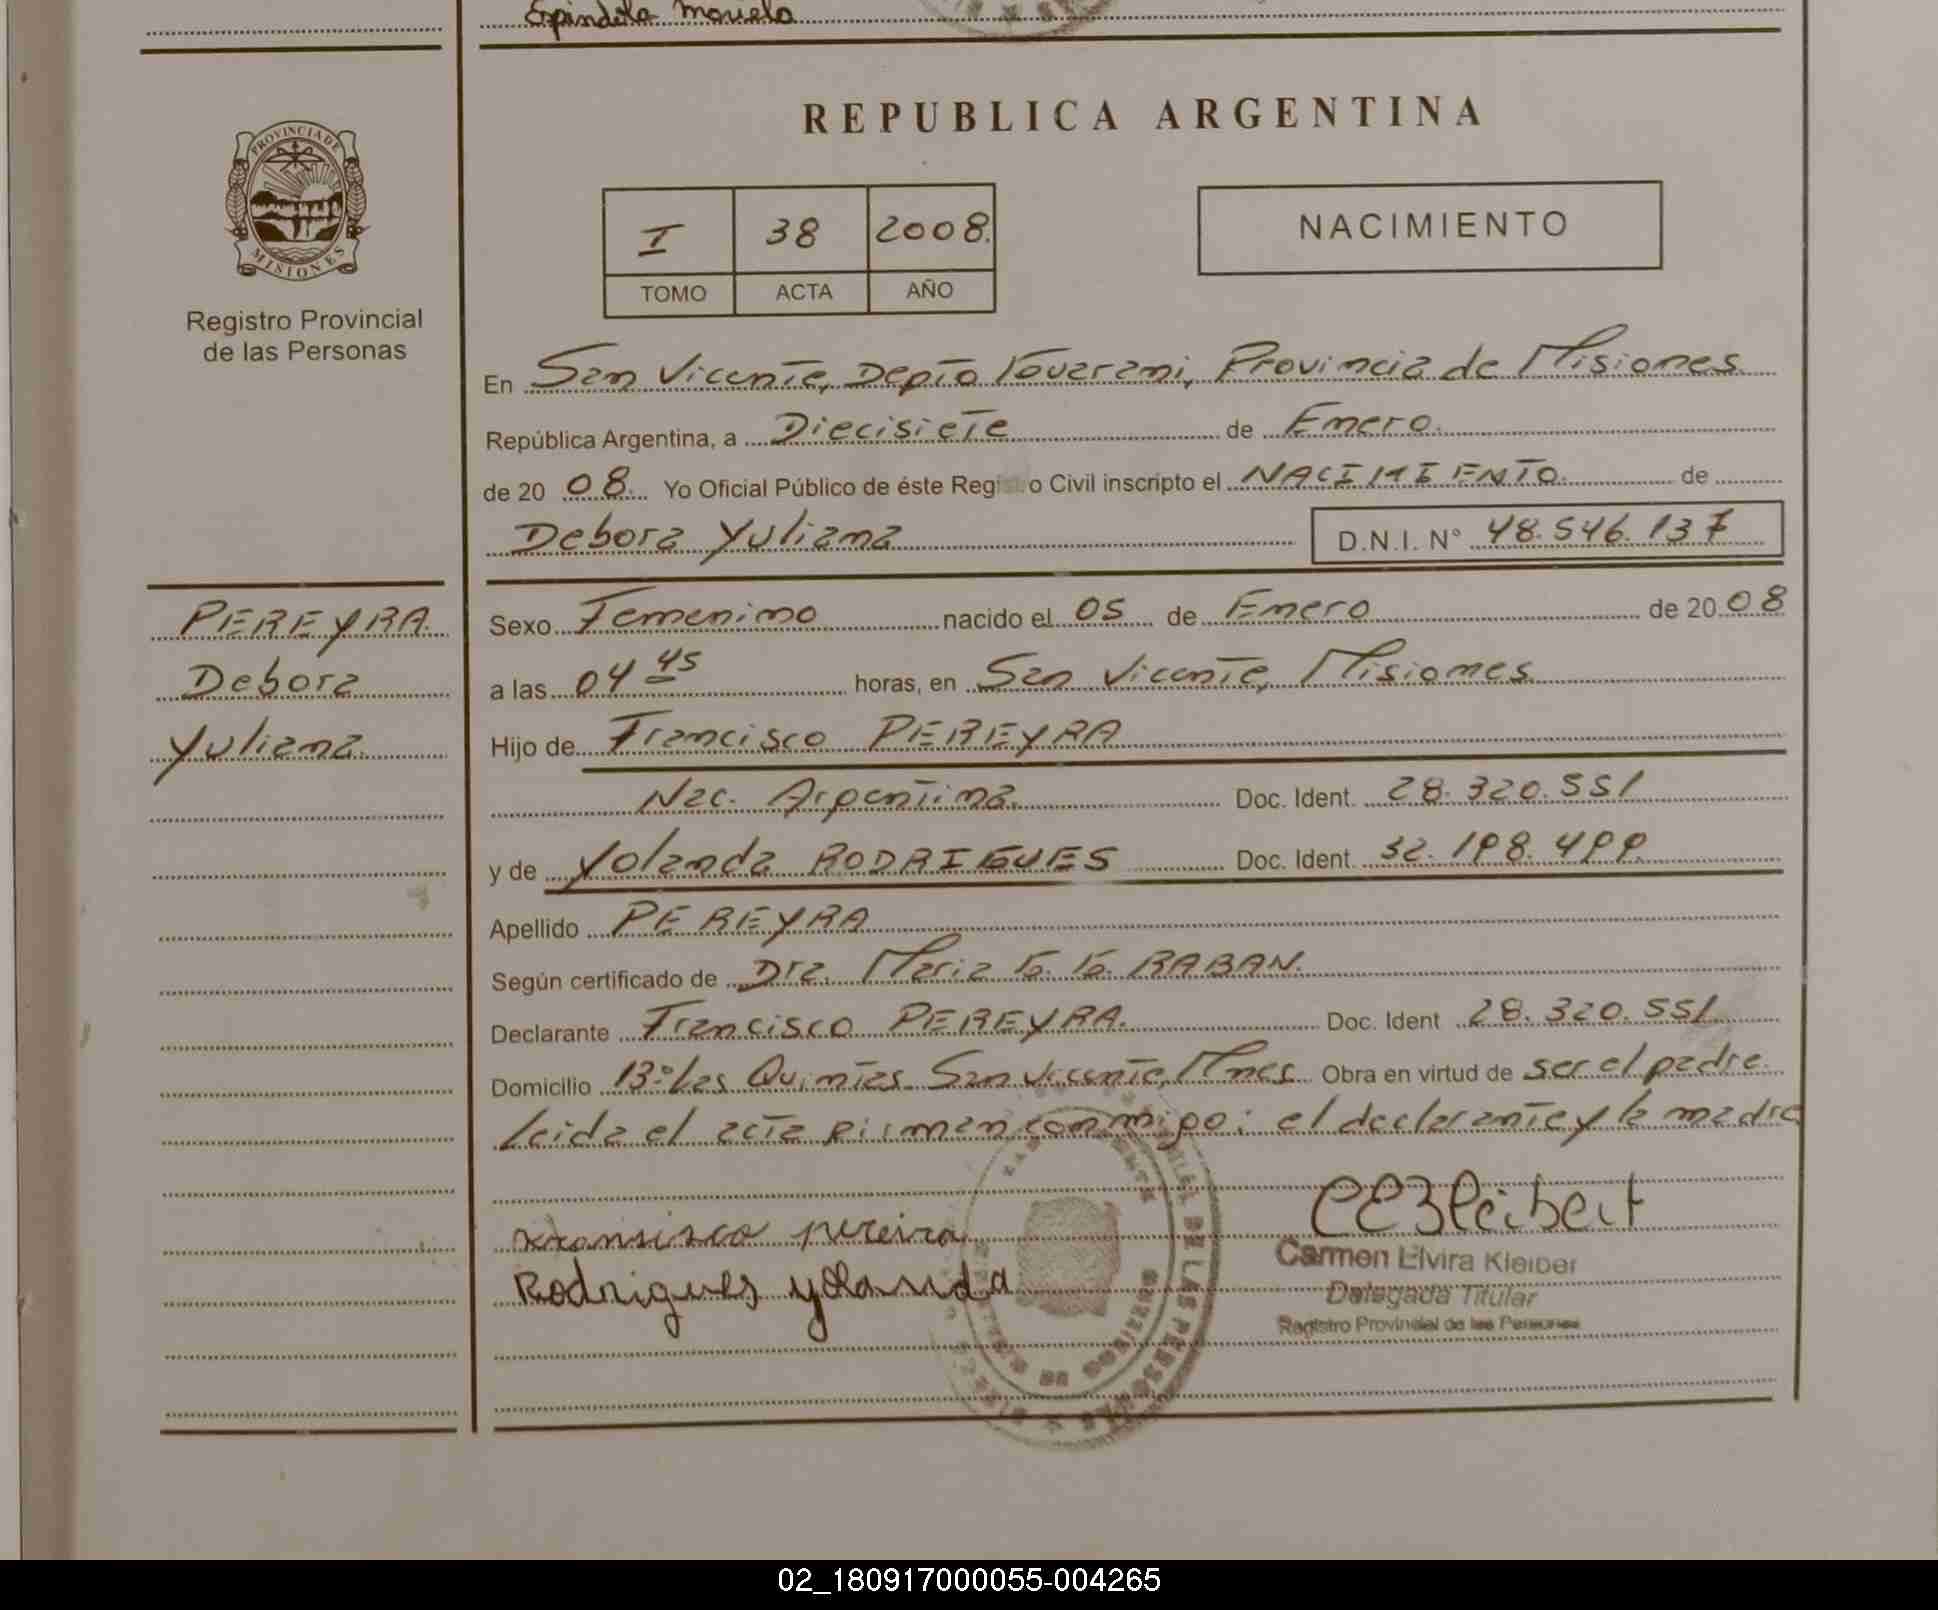 Espindola Mariela
PROVINCIA DE
MISIONES
Registro Provincial
de las Personas
REPUBLICA ARGENTINA
I 38 2008.
TOMO ACTA AÑO
NACIMIENTO
En San Vicente, Depto Guarani, Provincia de Misiones
República Argentina, a Diecisiete de Enero.
de 20 08. Yo Oficial Público de éste Registro Civil inscripto el NACIMIENTO. de
Debora Yuliana D.N.I. N° 48.546.137
PEREYRA
Debora
Yuliana.
Sexo Femenino nacido el 05 de Enero de 20 08
a las 04 45 horas, en San Vicente, Misiones
Hijo de Francisco PEREYRA
Nac. Argentina. Doc. Ident. 28.320.551
y de Yolanda RODRIGUES Doc. Ident. 32.198.499
Apellido PEREYRA
Según certificado de Dra. Maria G. G. RABAN.
Declarante Francisco PEREYRA. Doc. Ident 28.320.551
Domicilio B° Las Quintas San Vicente, Mnes Obra en virtud de ser el padre.
Leida el acta firman conmigo: el declarante y la madre
Fransisco pereira
Rodrigues yolanda
DE LAS PERSONAS
Carmen Elvira Kleiber
Delegada Titular
Registro Provincial de las Personas
02_180917000055-004265